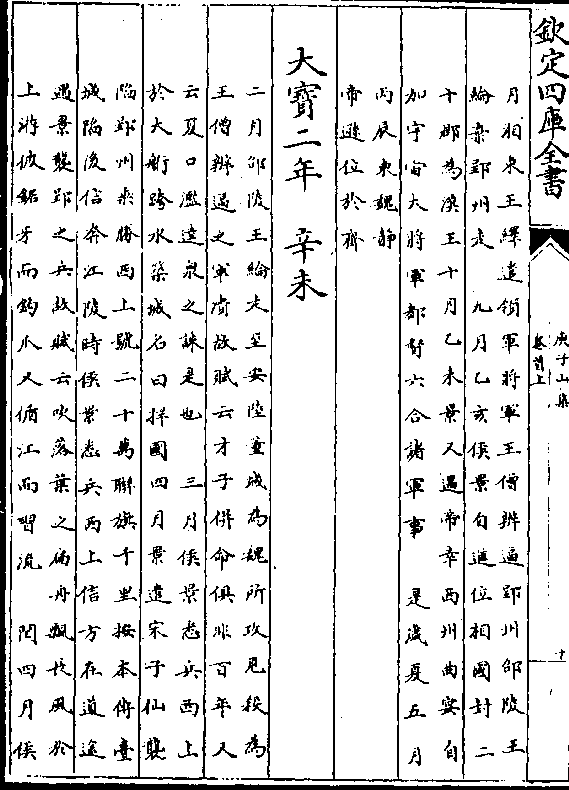 欽定四庫全書
庚子山集
卷首上
十
月湘東王繹遣領軍將軍王僧辯逼郢州邵陵王
綸棄郢州走　九月乙亥侯景自進位相國封二
十郡為漢王十月乙未景又逼帝幸西州曲宴自
加宇宙大將軍都督六合諸軍事　是歲夏五月
丙辰東魏静
帝遜位於齊
大寶二年　辛未
二月邵陵王綸走至安陸董城為魏所攻見殺為
王僧辯逼之軍潰故賦云才子併命俱非百年又
云夏口濫逵泉之誅是也　三月侯景悉兵西上
於大航跨水築城名曰捍國四月景遣宋子仙襲
陷郢州乘勝西上號二十萬聯旗千里按本傳臺
城陷後信奔江陵時侯景悉兵西上信方在道途
遇景襲郢之兵故賦云吹落葉之扁舟飄長風於
上游彼鋸牙而鈎爪又循江而習流　閏四月侯